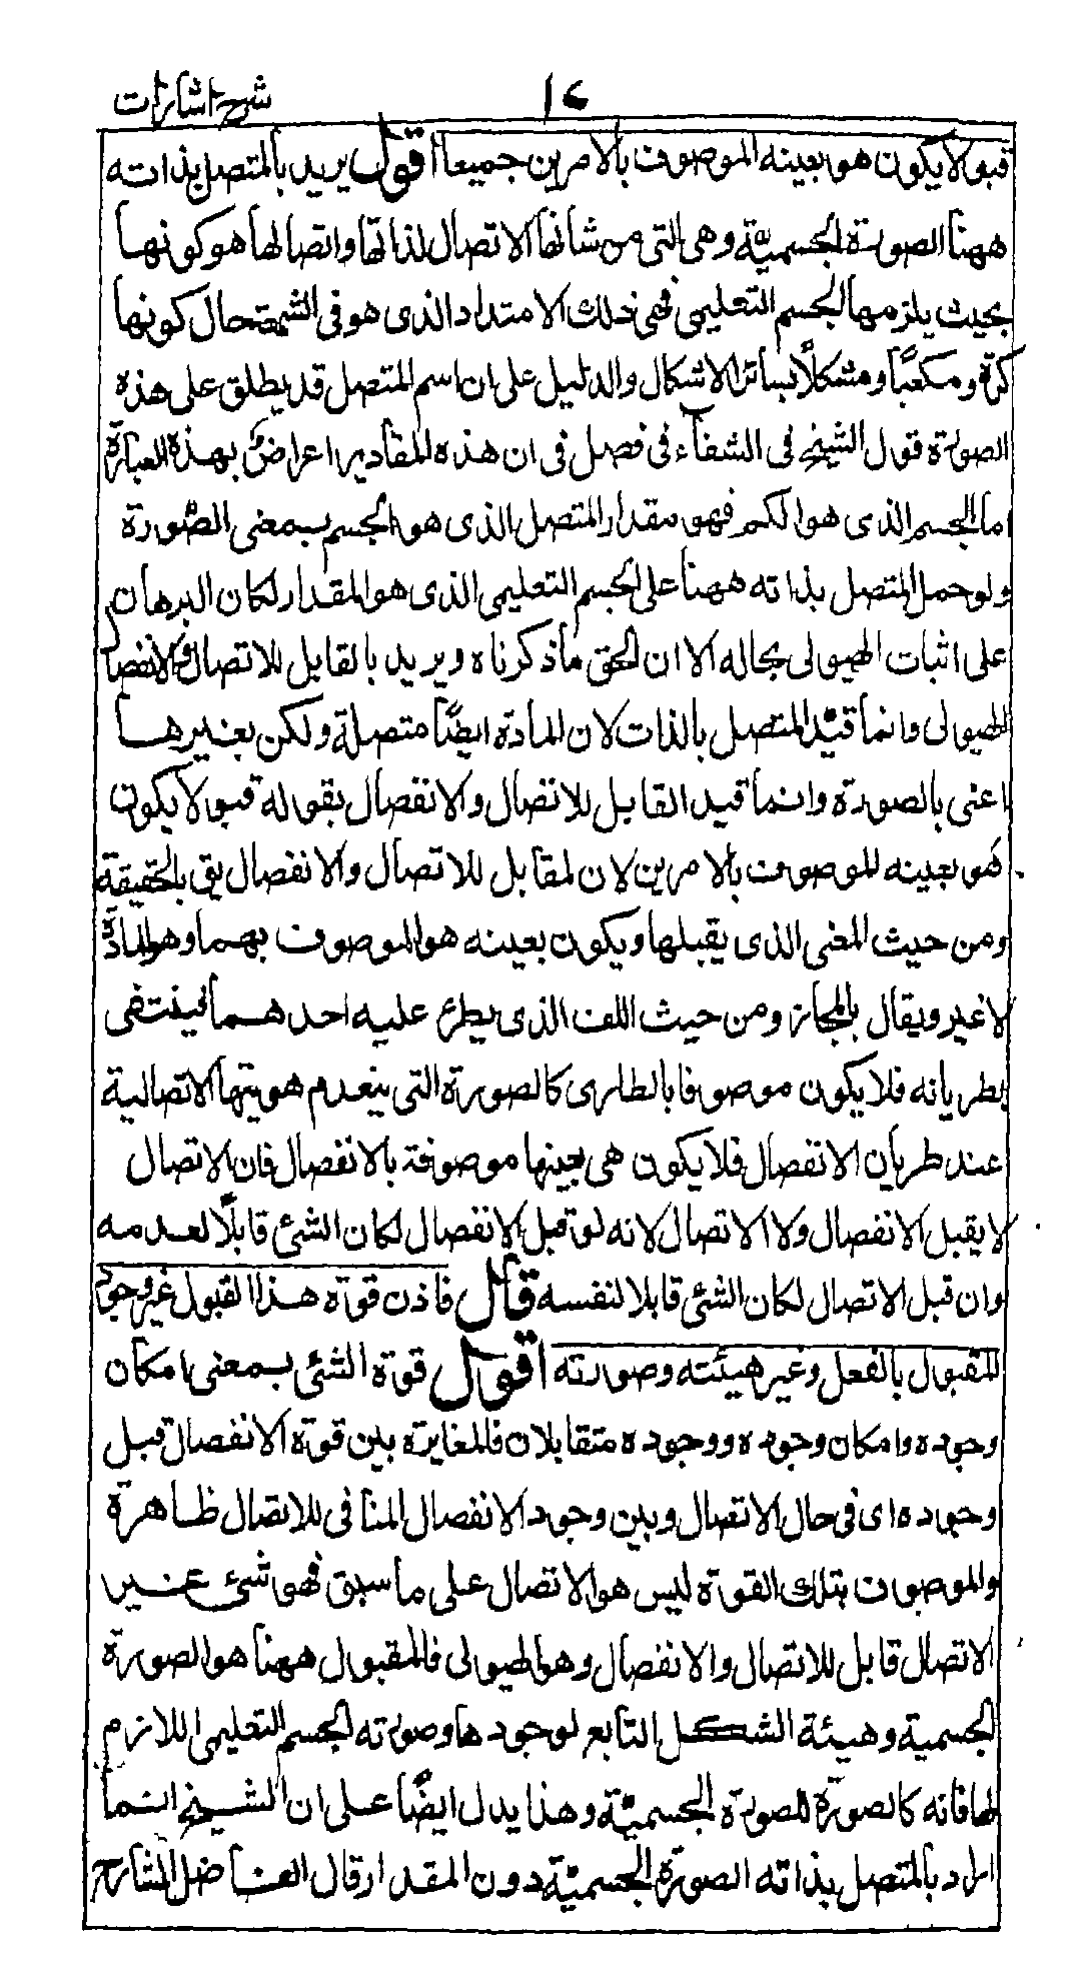 شرح اشارات
١٤
قبولا يكون هو بعينه الموصوف بالامرين جميعا اقول يريد بالمتصل بذاته
ههنا الصورة الجسميّة وهى التى من شانها الاتصال لذاتها واتصالها هو كونها
بحيث يلزمها الجسم التعليمى فهى ذلك الامتداد الذى هو فى الشمعة حال كونها
كرة ومكعبًا ومشكلًا بسائر الاشكال والدليل على ان اسم المتصل قد يطلق على هذه
الصورة قول الشيخ فى الشفاء فى فصل فى ان هذه المقادير اعراضٌ بهذه العبارة
اما الجسم الذى هو الكم فهو مقدار المتصل الذى هو الجسم بمعنى الصّورة
ولو حمل المتصل بذاته ههنا على الجسم التعليمى الذى هو المقدار لكان البرهان
على اثبات الهيولى بحاله الا ان الحق ما ذكرناه ويريد بالقابل للاتصال والانفصال
الهيولى وانما قيّد المتصل بالذات لان المادة ايضًا متصلة ولكن بغيرها
اعنى بالصورة وانما قيد القابل للاتصال والانفصال بقوله قبولا يكون
هو بعينه الموصوف بالامرين لان لمقابل للاتصال والانفصال يق بالحقيقة
ومن حيث المعنى الذى يقبلها ويكون بعينه هو الموصوف بهما وهو المادّة
لا غير ويقال بالمجاز ومن حيث اللف الذى يطرء عليه احدهما فينتفى
بطريانه فلا يكون موصوفا بالطارى كالصورة التى ينعدم هويتها الاتصالية
عند طريان الانفصال فلا يكون هى بعينها موصوفة بالانفصال فان الاتصال
لا يقبل الانفصال ولا الاتصال لانه لو قبل الانفصال لكان الشئ قابلًا لعدمه
وان قبل الاتصال لكان الشئ قابلا لنفسه قال فاذن قوة هذا القبول غير وجود
المقبول بالفعل وغير هيئته وصورته اقول قوة الشئ بمعنى امكان
وجوده وامكان وجوده ووجوده متقابلان فالمغايرة بين قوة الانفصال قبل
وجوده اى فى حال الاتصال وبين وجود الانفصال المنافى للاتصال ظاهرة
والموصوف بتلك القوة ليس هو الاتصال على ما سبق فهو شئ غير
الاتصال قابل للاتصال والانفصال وهو الهيولى فالمقبول ههنا هو الصورة
الجسمية وهيئة الشكل التابع لوجودها وصورته الجسم التعليمى اللازم
لها فانه كالصورة للصورة الجسميّة وهذا يدل ايضًا على ان الشيخ انما
اراد بالمتصل بذاته الصورة الجسميّة دون المقدار قال الفاضل الشارح